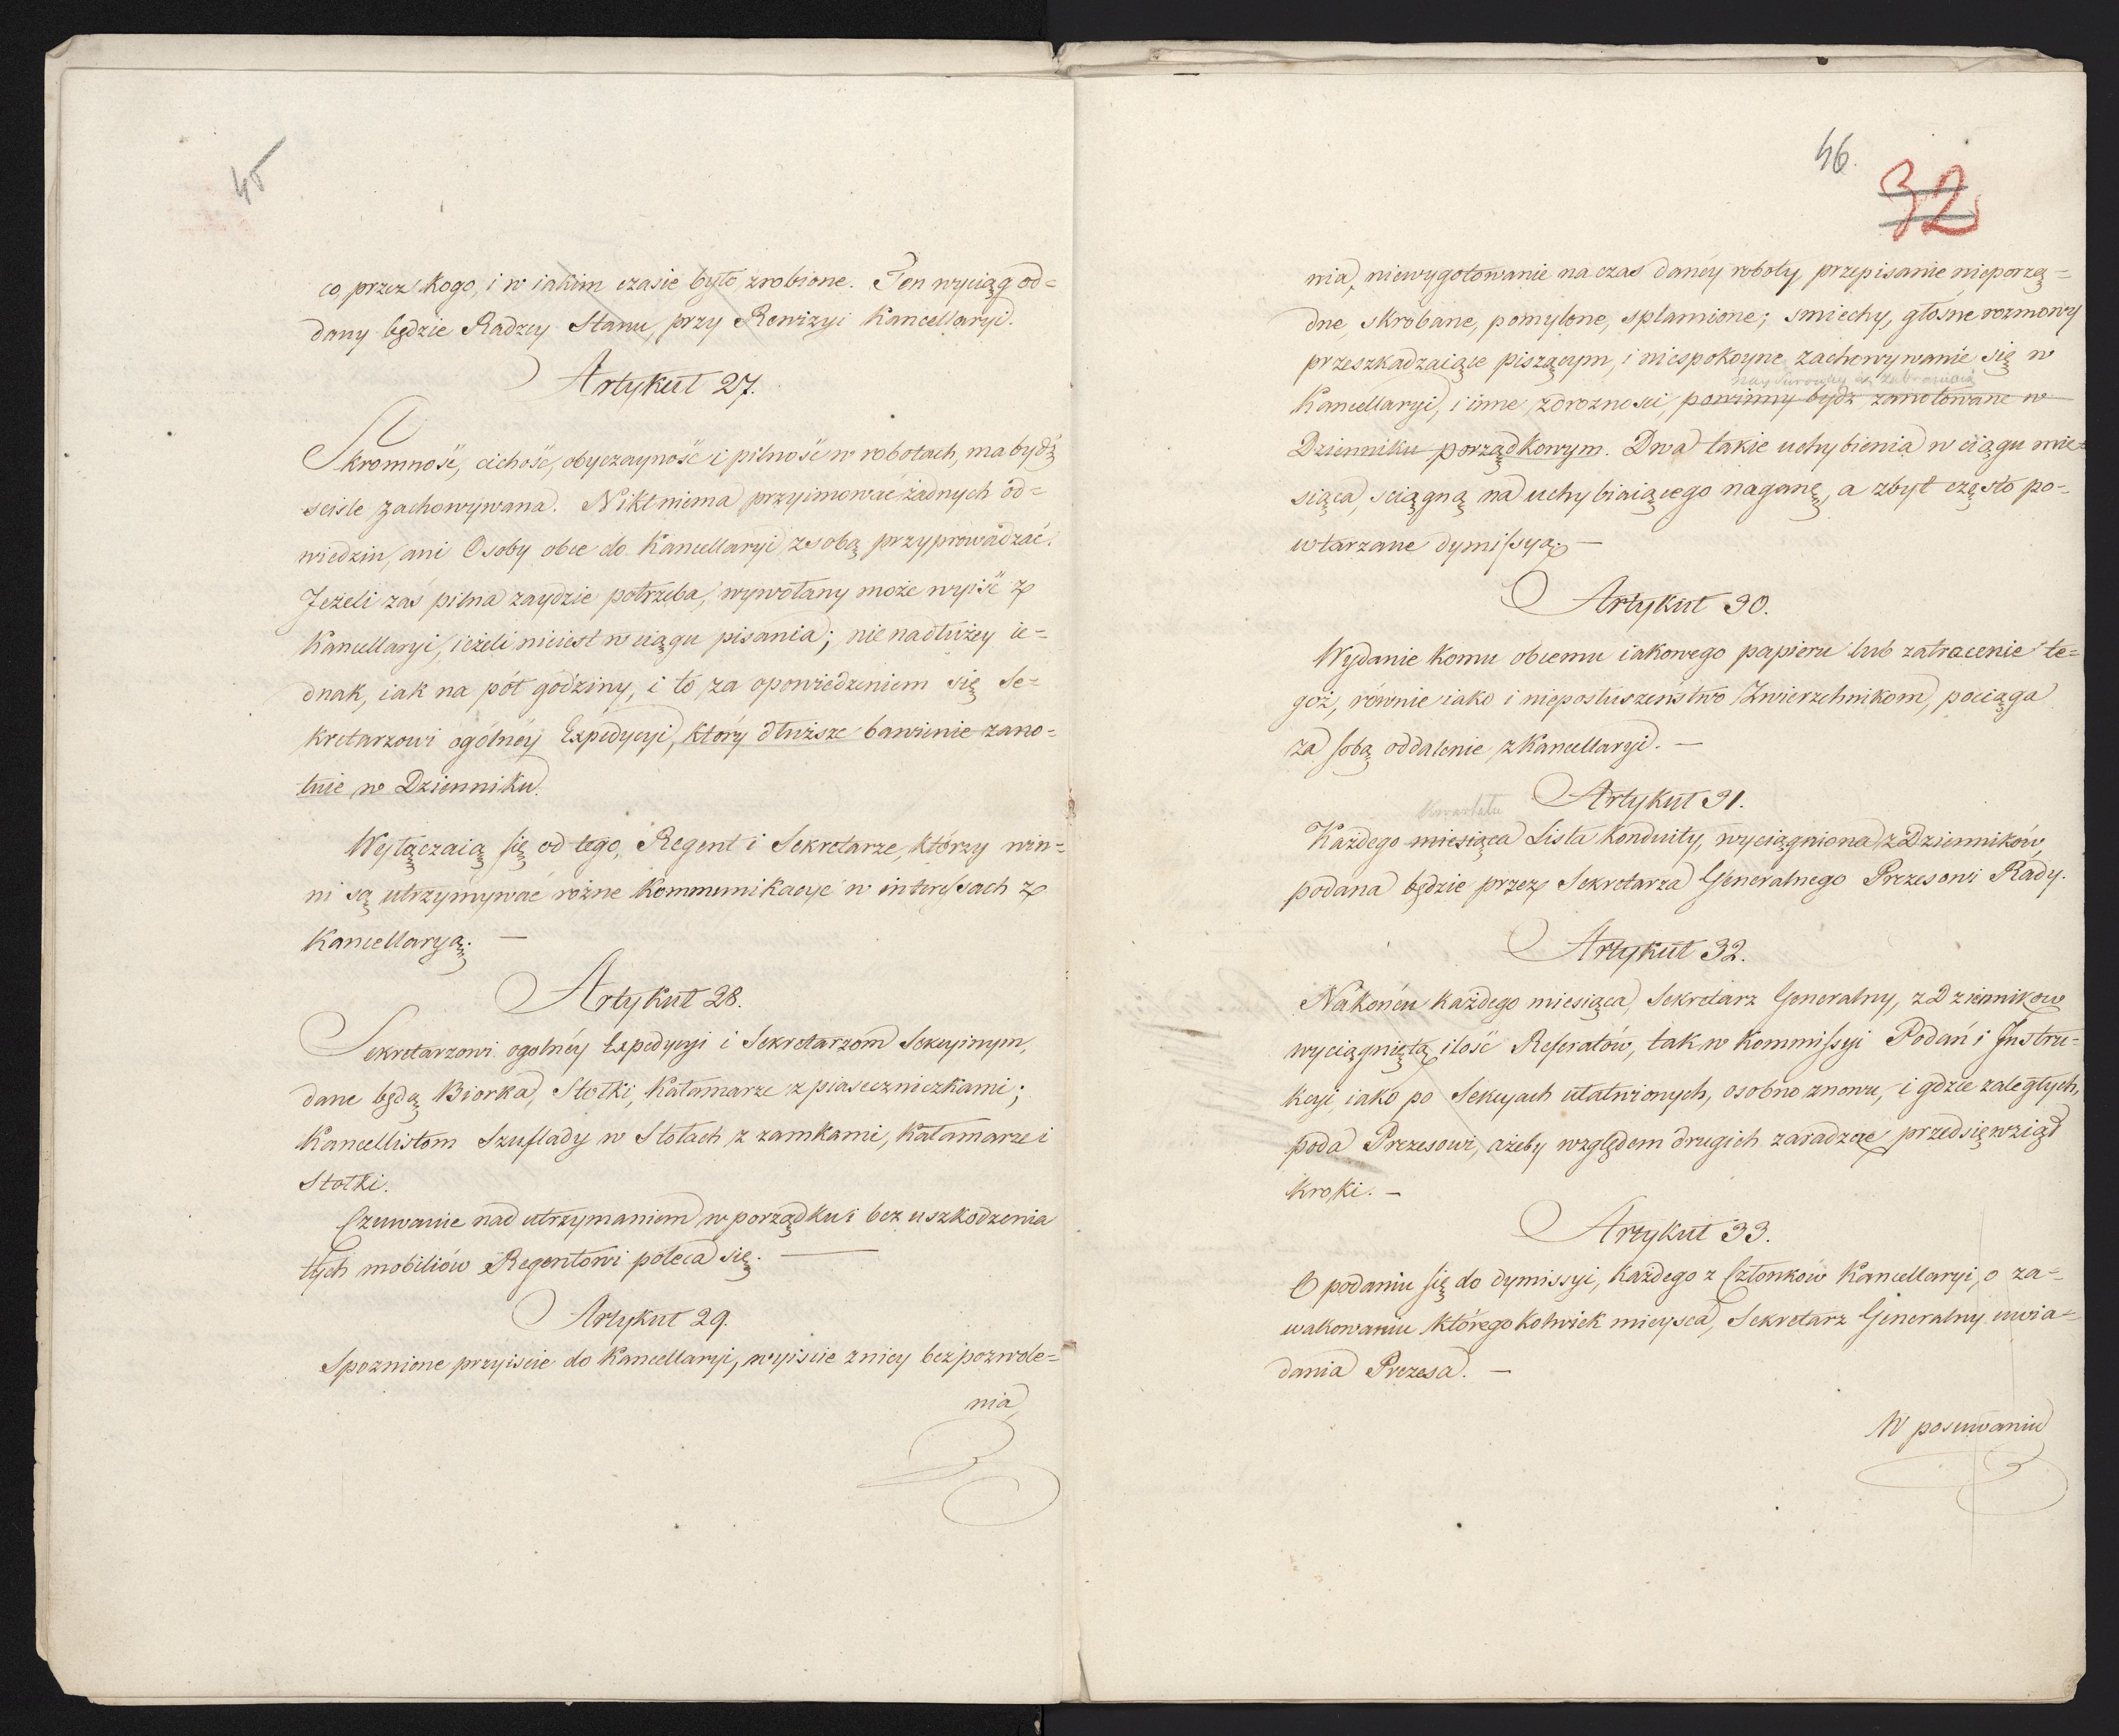 45
co przez kogo, i w iakim czasie było zrobione. Ten wyciąg od=
dany będzie Radzcy Stanu, przy Rewizyi Kancellaryi.
Artykuł 27.
Skromność, cichość, obyczayność i pilność w robotach, ma bydź
scisle zachowywana. Nikt niema przyimować żadnych od=
wiedzin, ani Osoby obce do Kancellaryi z sobą przyprowadzać.
Jeżeli zaś pilna zaydzie potrzeba, wywołany może wyiść z
Kancellaryi, ieżeli nieiest w ciągu pisania; nie nadłużey ie=
dnak, iak na pół godziny, i to za opowiedzeniem się Se=
kretarzowi ogólnéy Expedycyi, który dłuższe bawienie zano=
tuie w Dzienniku.
Wyłączaią się od tego, Regent i Sekretarze, którzy win=
ni są utrzymywać rożne Kommunikacye w interessach z
Kancellaryą. —
Artykuł 28.
Sekretarzowi ogolnéy Expedycyi i Sekretarzom Sekcyinym,
dane będą Biorka, Stołki, Kałamarze z piaseczniczkami;
Kancellistom Szuflady w Stołach z zamkami, Kałamarze i
Stołki.
Czuwanie nad utrzymaniem w porządku i bez uszkodzenia
tych mobiliów Regentowi poleca się. —
Artykuł 29.
Spoznione przyiscie do Kancellaryi, wyiscie z niey bez pozwole=
nia,
46.
32
nia, niewygotowanie na czas danéy roboty, przepisanie nieporzą=
dne, skrobane, pomylone, splamione; smiechy, głośne rozmowy
przeszkadzaiące piszącym, i niespokoyne zachowywanie się w
nay surowiey są zabronione
Kancellaryi, i inne zdroznosci, powinny bydź zanotowane w
Dzienniku porządkowym. Dwa takie uchybienia w ciągu mie=
siąca, sciągną na uchybiaiącego naganę, a zbyt często po=
wtarzane dymissyą. —
Artykuł 30.
Wydanie komu obcemu iakowego papieru lub zatracenie te=
goż, równie iako i nieposłuszeństwo Zwierzchnikom, pociąga
za sobą oddalenie z Kancellaryi. —
Artykuł 31.
kwartału
Każdego miesiąca Lista Konduity, wyciągniona z Dzienników,
podana będzie przez Sekretarza Generalnego Prezesowi Rady.
Artykuł 32.
Na końcu każdego miesiąca, Sekretarz Generalny, z Dziennikow
wyciągniętą ilość Referatów, tak w Kommissyi Podań i Instru=
kcyi, iako po Sekcyach ułatwionych, osobno znowu, i gdzie zaległych,
poda Prezesowi, ażeby względem drugich zaradzcze przedsięwziął
kroki. —
Artykuł 33.
O podaniu się do dymissyi, każdego z Członkow Kancellaryi, o za=
wakowaniu któregokolwiek mieysca, Sekretarz Generalny uwia=
damia Prezesa. —
W posuwaniu